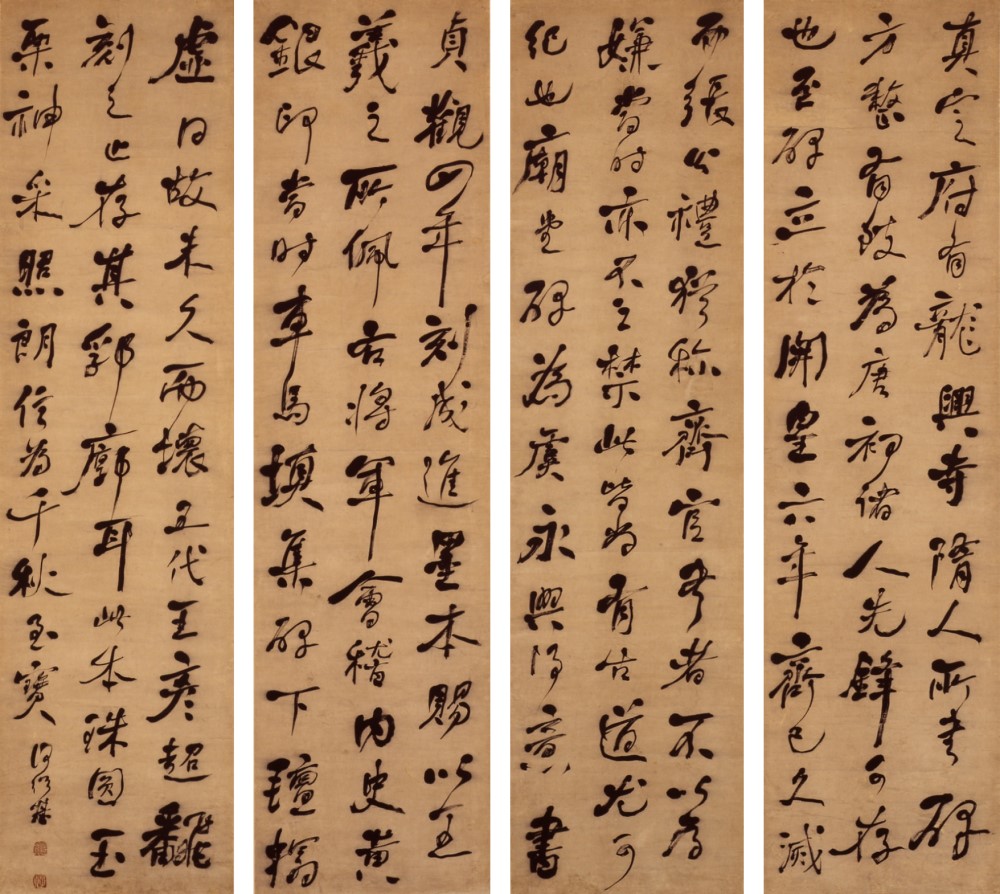 真定府有龍興寺隋人所書碑
方整有致為唐初諸人先鋒可存
也至碑立於開皇六年齊已久滅
而張公禮猶稱齊官書者不以為
嫌當時亦不之禁此皆為有古道尤可
紀也廟堂碑為虞永興得意書
貞觀四年刻成進墨本賜以王
羲之所佩右將軍會稽內史黃
銀印當時車馬填集碑下氈搨
虛日故未久而壞五代王彥超翻
刻之止存其郛廓耳此本珠圓玉
栗神采照朗信為千秋至寶 何紹基